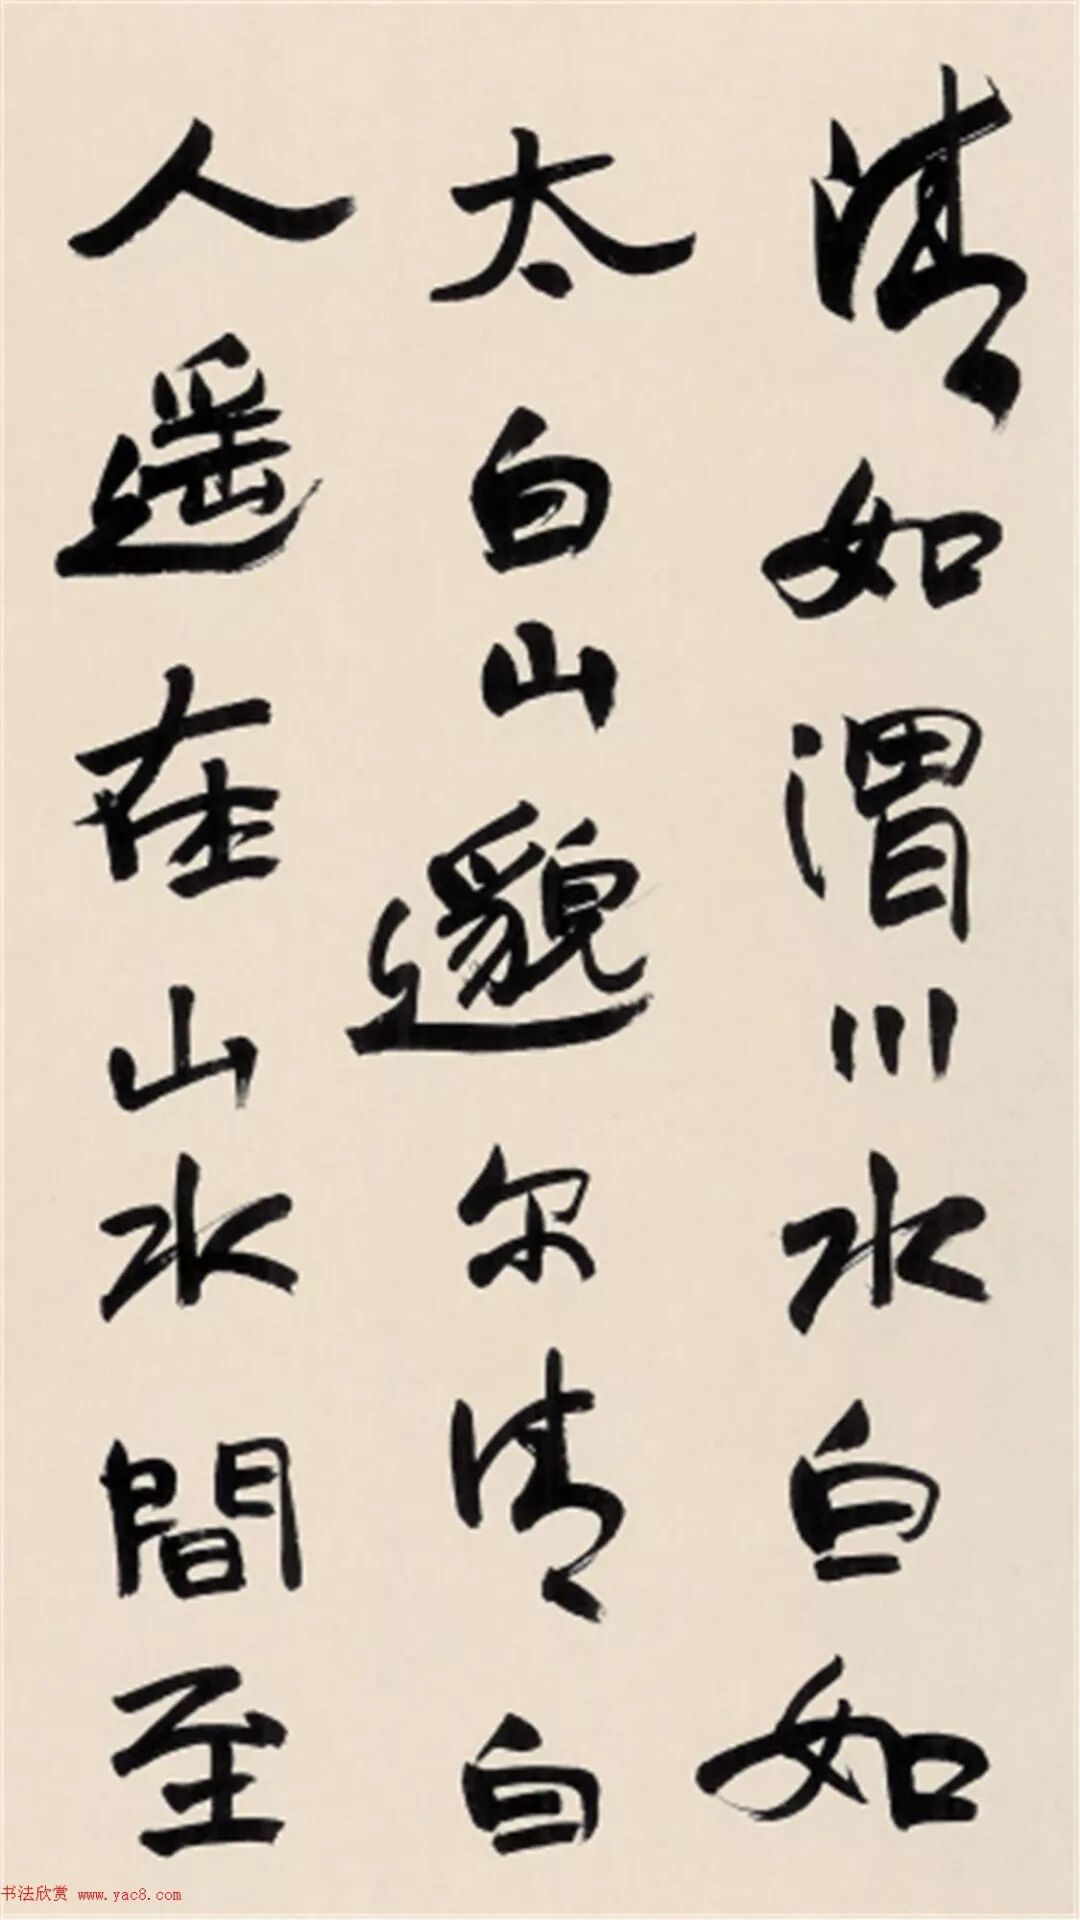 清如渭川水白如
太白山邈尔清白
人遥在山水間至
书法欣赏 www.yac8.com